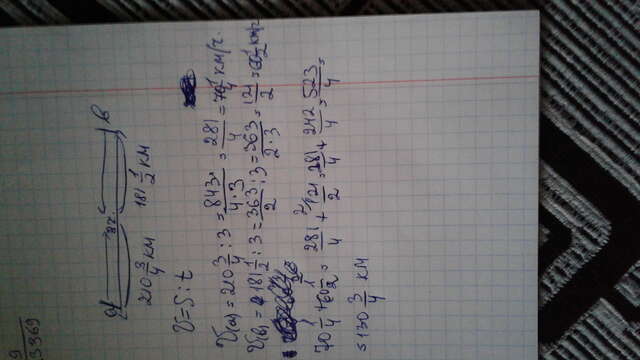 9
3369
a 3ч. b
210 3/4 км 181 1/2 км
V=S:t
V(a) = 210 3/4 : 3 = 843/4·3 = 281/4 = 70 1/4 км/ч.
V(b) = 181 1/2 : 3 = 363/2 : 3 = 363/2·3 = 121/2 = 60 1/2 км/ч
70 1/4 + 60 1/2 = 281/4 + 121/2 = 281/4 + 242/4 = 523/4 =
= 130 3/4 км